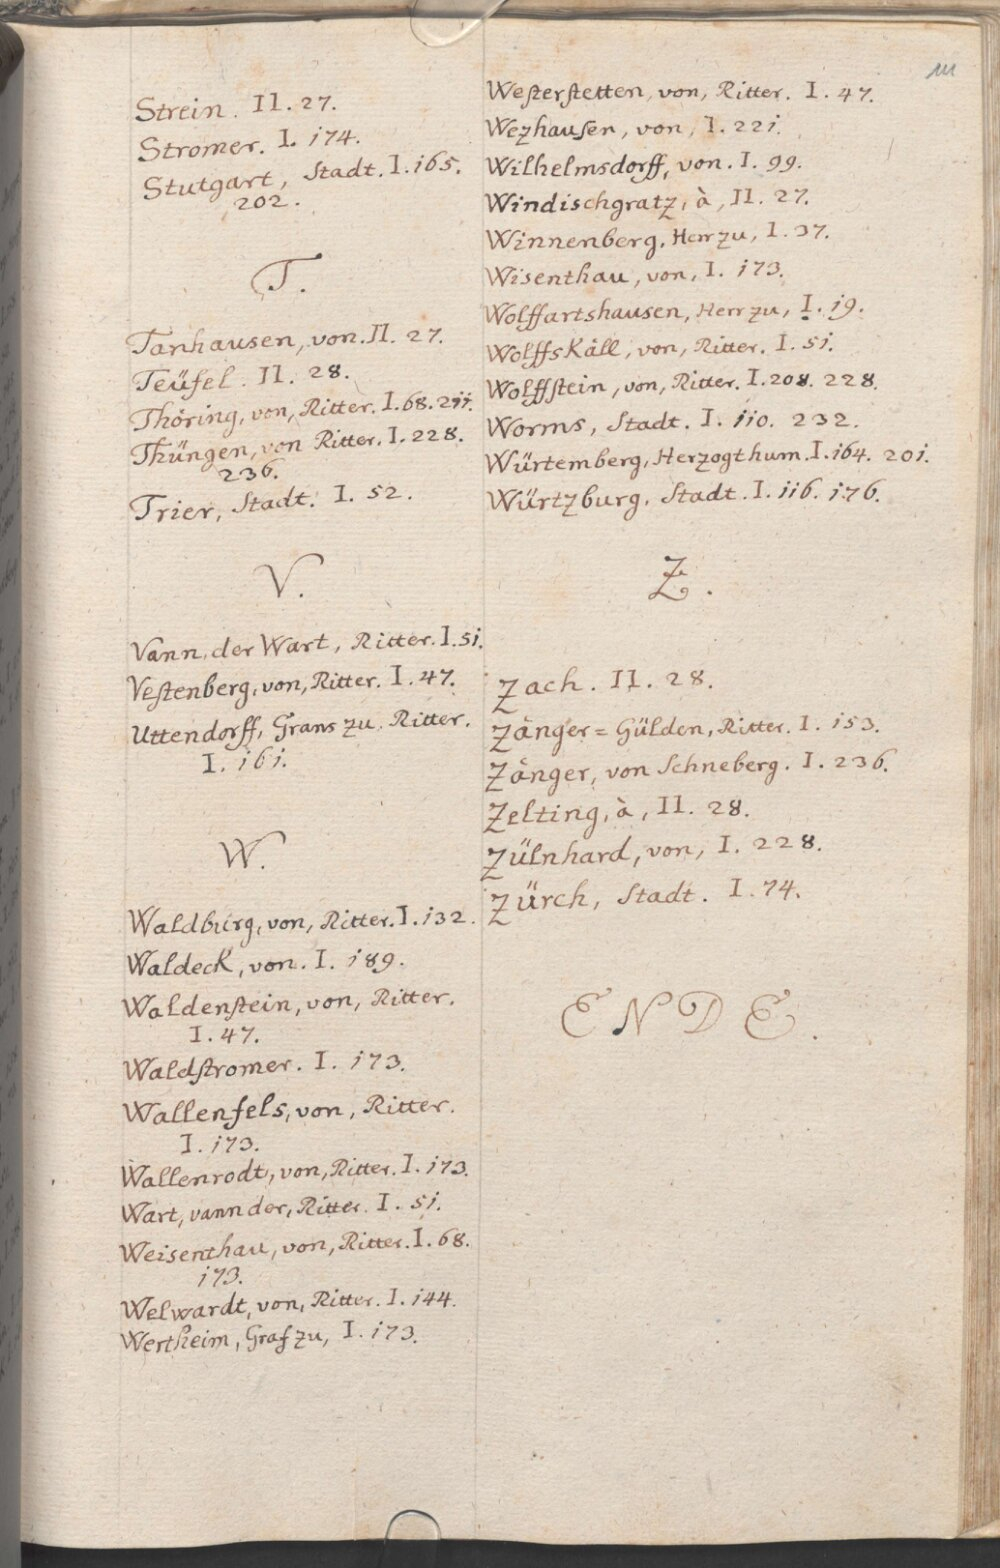 Strein. II. 27.
Stromer. I. 174.
Stutgart, Stadt. I. 165.
202.
T.
Tanhausen, von. II. 27.
Teüfel. II. 28.
Thöring, von, Ritter. I. 68. 211.
Thüngen, von Ritter. I. 228.
236.
Trier, Stadt. I. 52.
V.
Vann, der Wart, Ritter. I. 51.
Vestenberg, von, Ritter. I. 47.
Uttendorff, Grans zu, Ritter.
I. 161.
W.
Waldburg, von, Ritter. I. 132.
Waldeck, von. I. 189.
Waldenstein, von, Ritter.
I. 47.
Waldstromer. I. 173.
Wallenfels, von, Ritter.
I. 173.
Wallenrodt, von, Ritter. I. 173.
Wart, vann der, Ritter. I. 51.
Weisenthau, von, Ritter. I. 68.
173.
Welwardt, von, Ritter. I. 144.
Wertheim, Graf zu, I. 173.
Westerstetten, von, Ritter. I. 47.
Wezhausen, von, I. 221.
Wilhelmsdorff, von. I. 99.
Windischgratz, à, II. 27.
Winnenberg, Herr zu, I. 37.
Wisenthau, von, I. 173.
Wolffartshausen, Herr zu, I. 19.
WolffsKäll, von, Ritter. I. 51.
Wolffstein, von, Ritter. I. 208. 228.
Worms, Stadt. I. 110. 232.
Würtemberg, Herzogthum. I. 164. 201.
Würtzburg, Stadt. I. 116. 176.
Z.
Zach. II. 28.
Zänger = Gülden, Ritter. I. 153.
Zänger, von Schneberg. I. 236.
Zelting, à, II. 28.
Zülnhard, von, I. 228.
Zürch, Stadt. I. 74.
ENDE.